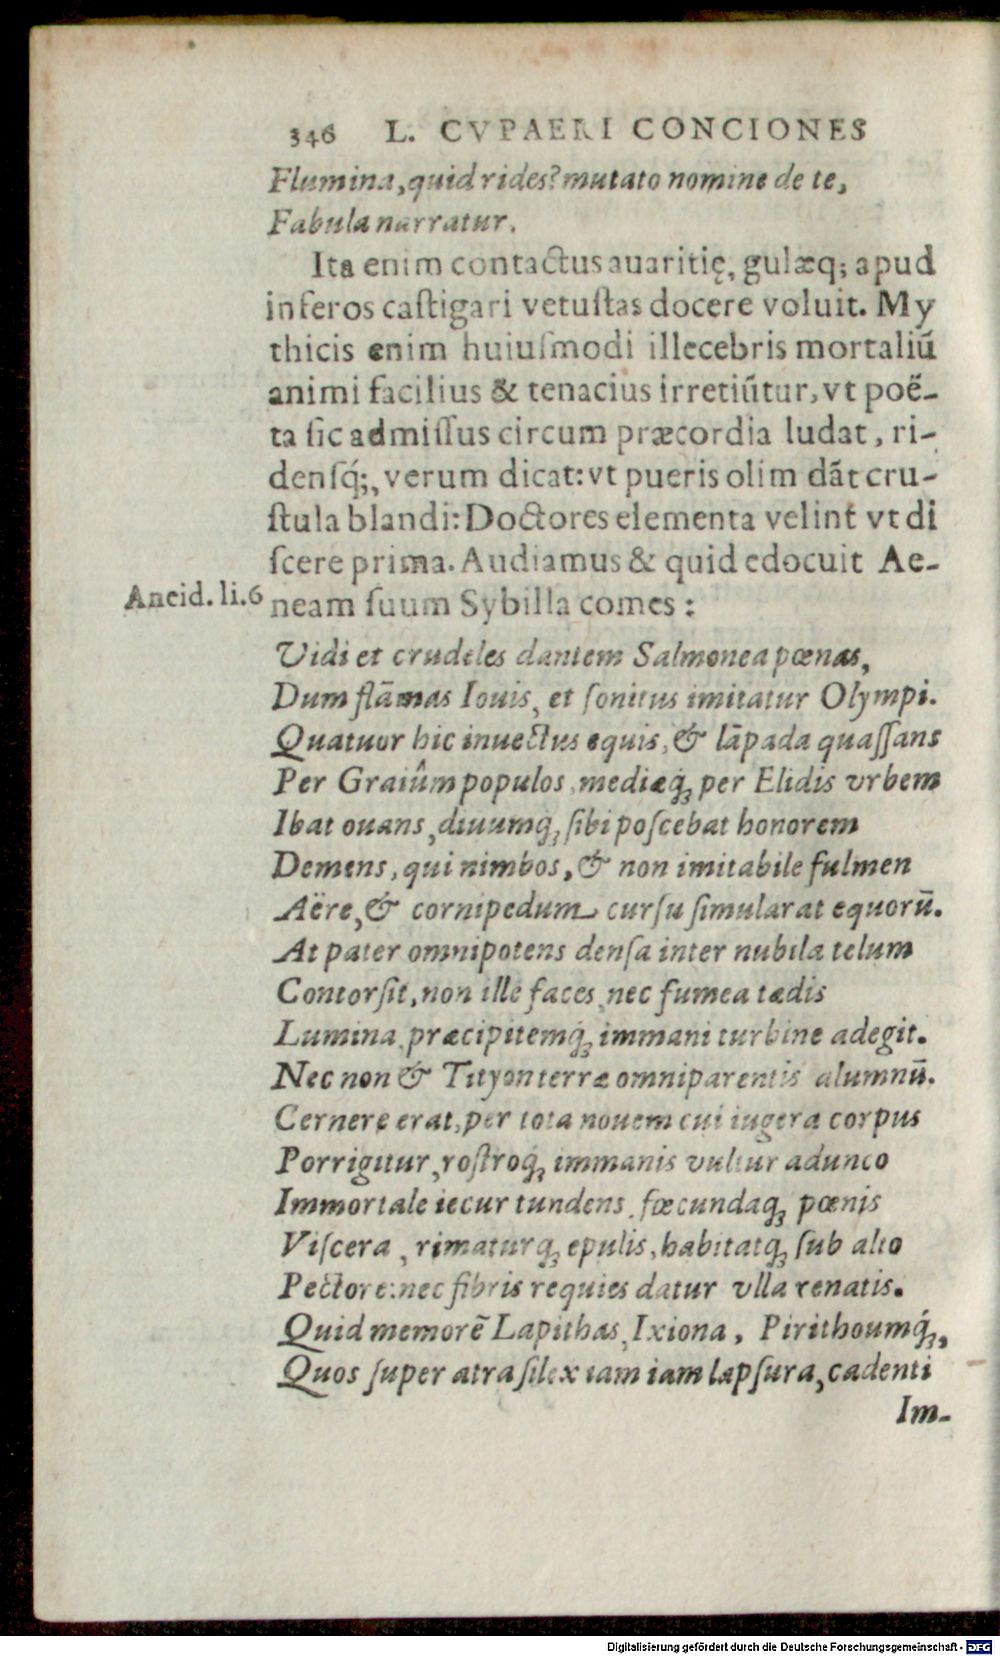 346 L. CVPAERI CONCIONES
Flumina, quid rides? mutato nomine de te,
Fabula narratur.
Ita enim contactus auaritię, gulæq; apud
inferos caſtigari vetuſtas docere voluit. My
thicis enim huiuſmodi illecebris mortaliũ
animi facilius & tenacius irretiũtur, vt poë-
ta ſic admiſſus circum præcordia ludat, ri-
denſq́;, verum dicat: vt pueris olim dãt cru-
ſtula blandi: Doctores elementa velint vt di
ſcere prima. Audiamus & quid edocuit Ae-
Aneid. li. 6 neam ſuum Sybilla comes:
Vidi et crudeles dantem Salmonea pœnas,
Dum flãmas Iouis, et ſonitus imitatur Olympi.
Quatuor hic inuectus equis, & lãpada quaſſans
Per Graiûm populos, mediæq́ꝫ per Elidis vrbem
Ibat ouans, diuumq́ꝫ ſibi poſcebat honorem
Demens, qui nimbos, & non imitabile fulmen
Aëre, & cornipedum curſu ſimularat equorũ.
At pater omnipotens denſa inter nubila telum
Contorſit, non ille faces, nec fumea tædis
Lumina, præcipitemq́ꝫ immani turbine adegit.
Nec non & Tityon terræ omniparentis alumnũ.
Cernere erat, per tota nouem cui iugera corpus
Porrigitur, roſtroq́ꝫ immanis vultur adunco
Immortale iecur tundens, fœcundaqꝫ pœnis
Viſcera, rimaturqꝫ epulis, habitatqꝫ ſub alto
Pectore: nec fibris requies datur vlla renatis.
Quid memorẽ Lapithas, Ixiona, Pirithoumq́ꝫ,
Quos ſuper atra ſilex iam iam lapſura, cadenti
Im-
Digitalisierung gefördert durch die Deutsche Forschungsgemeinschaft - DFG